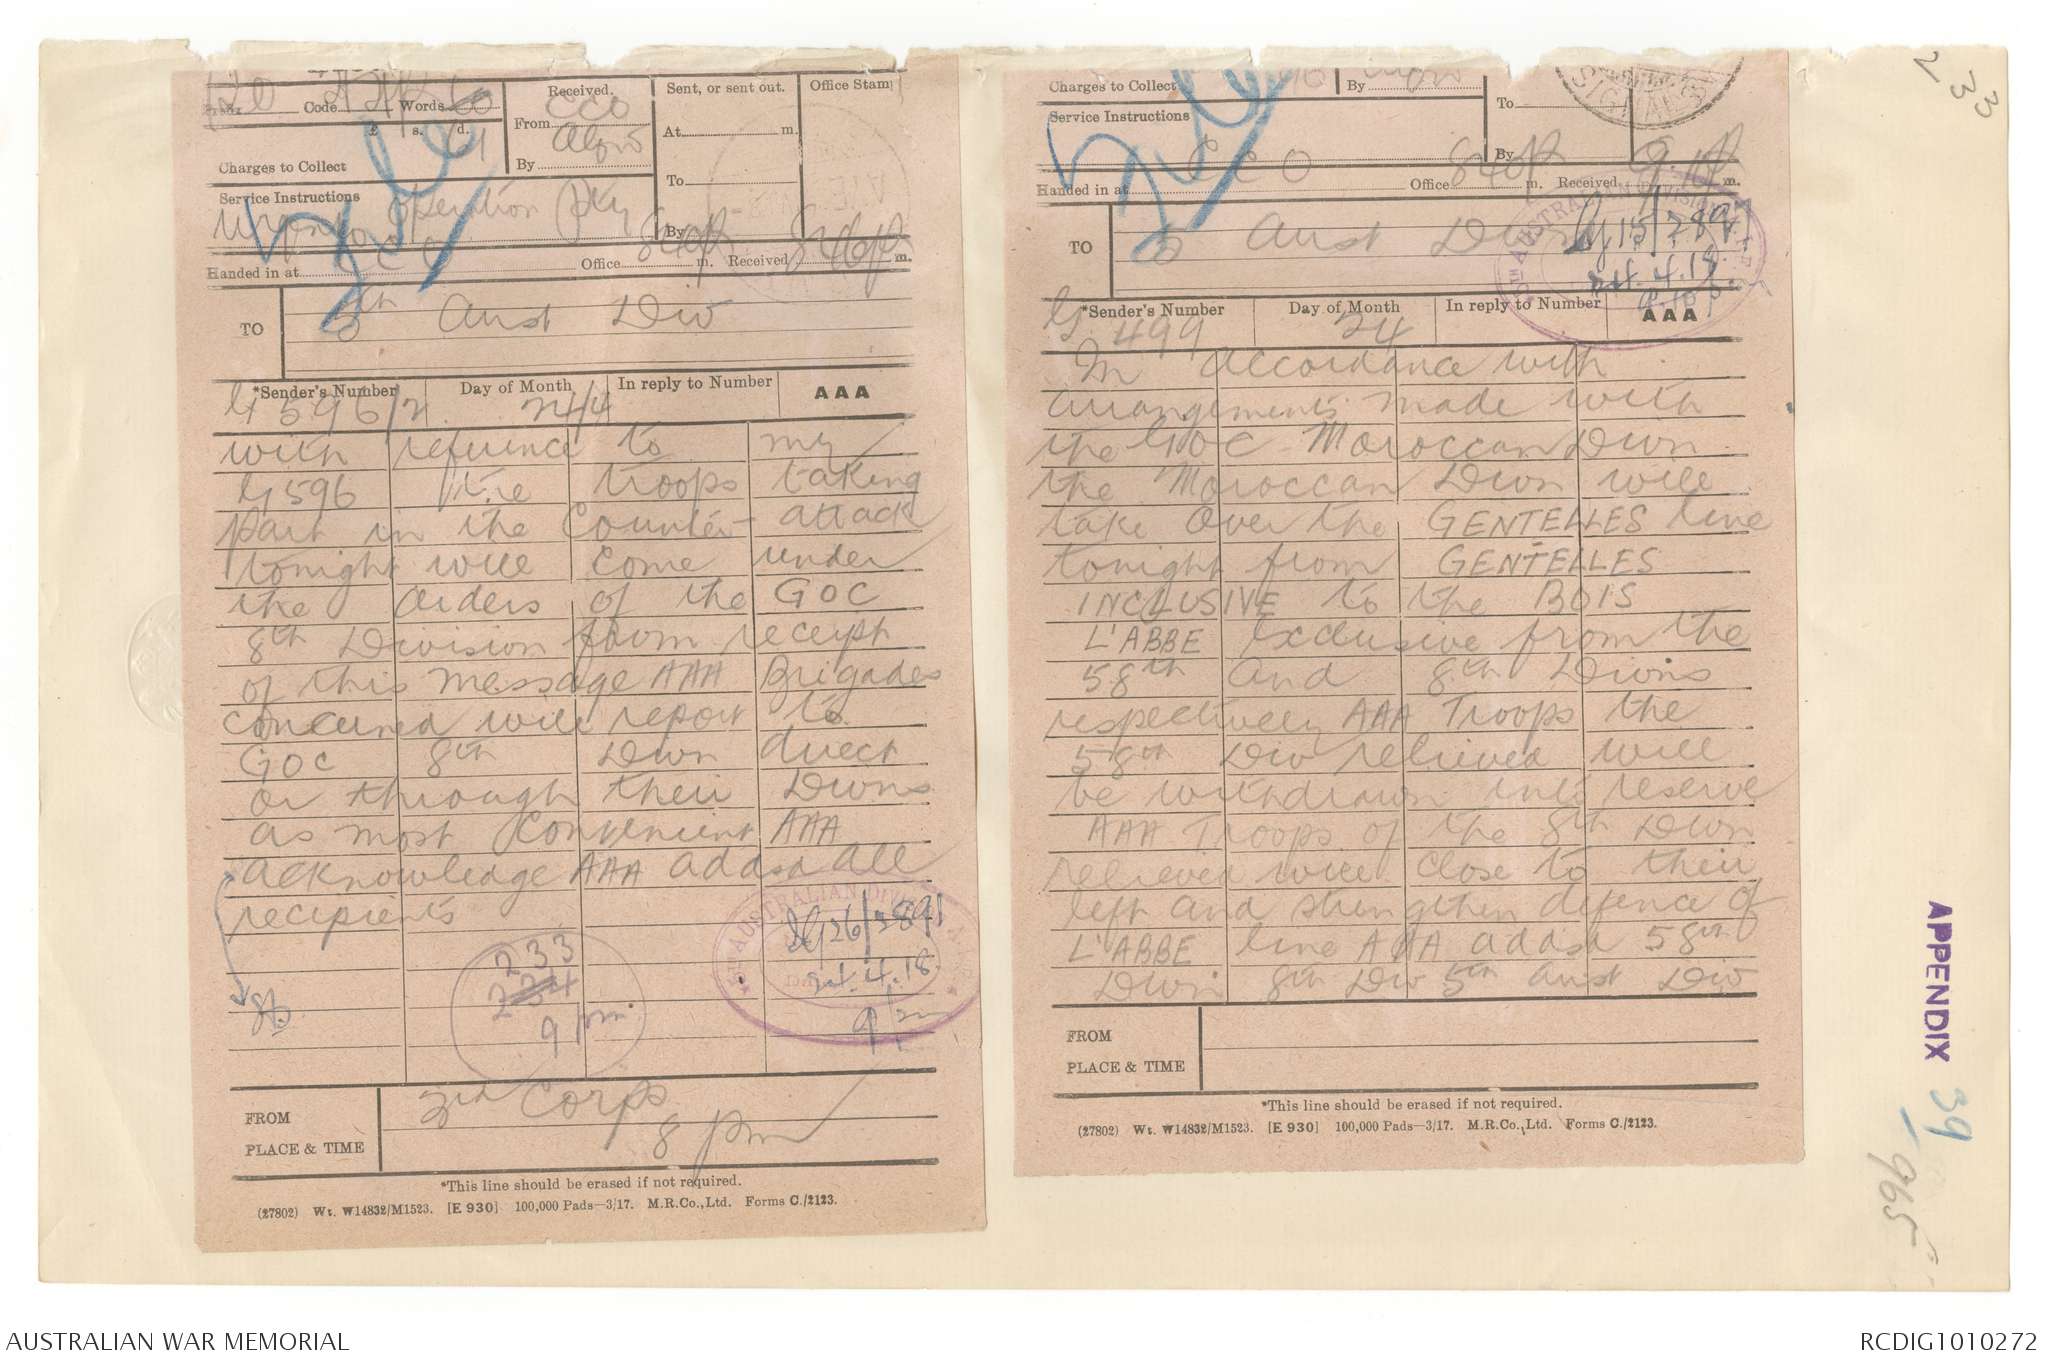 Code
Words 60
61
£ s. d.
Charges to Collect
Received.
From CCO
By
Sent, or sent out.
At m.
To
By
Office Stamp
Service Instructions
Urgent Operation Pty
Handed in at CCO Office 840p m. Received 846p m.
TO
5th Aust Div
*Sender's Number
Day of Month
In reply to Number
AAA
G 596/2 24/4
with reference to my
G596 the troops taking
part in the Counter-attack
tonight will come under
the orders of the GOC
8th Division from receipt
of this message AAA Brigades
concerned will report to
GOC 8th Divn direct
or through their Divns
as most convenient AAA
acknowledge AAA addsd all
recipients
AUSTRALIAN DIVISION
24.4.18.
9 pm
233
234
9 pm.
FROM
PLACE & TIME
3rd Corps
8 pm
*This line should be erased if not required.
(27802) Wt. W14832/M1523. [E 930] 100,000 Pads—3/17. M.R.Co., Ltd. Forms C./2123.
Charges to Collect
By
To
By
SIGNALS
Service Instructions
CCO
Handed in at Office 840p m. Received 9.10p m.
TO
5 Aust Divn
5TH AUSTRALIAN DIVISION
24.4.18.
9.10 p
*Sender's Number
Day of Month
In reply to Number
AAA
G 499 24
In accordance with
arrangements made with
the GOC Moroccan Divn
the Moroccan Divn will
take over the GENTELLES line
tonight from GENTELLES
INCLUSIVE to the BOIS
L'ABBE exclusive from the
58th and 8th Divns
respectively AAA Troops the
58th Div relieved will
be withdrawn into reserve
AAA Troops of the 8th Divn
relieved will close to their
left and strengthen defence of
L'ABBE line AAA addsd 58th
Divn 8th Div 5th Aust Div
FROM
PLACE & TIME
*This line should be erased if not required.
(27802) Wt. W14832/M1523. [E 930] 100,000 Pads—3/17. M.R.Co., Ltd. Forms C./2123.
2
33
3
APPENDIX 39
965
AUSTRALIAN WAR MEMORIAL
RCDIG1010272